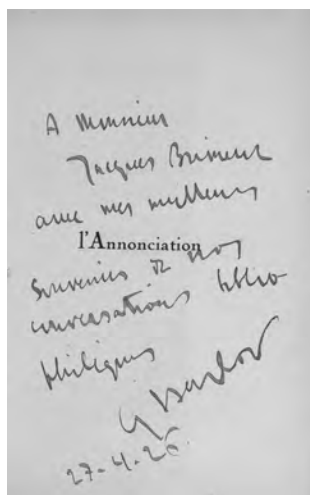 A Monsieur
Jacques
avec mes meilleurs
l'Annonciation
souvenirs de nos
conversations biblio
philiques
27-4-26